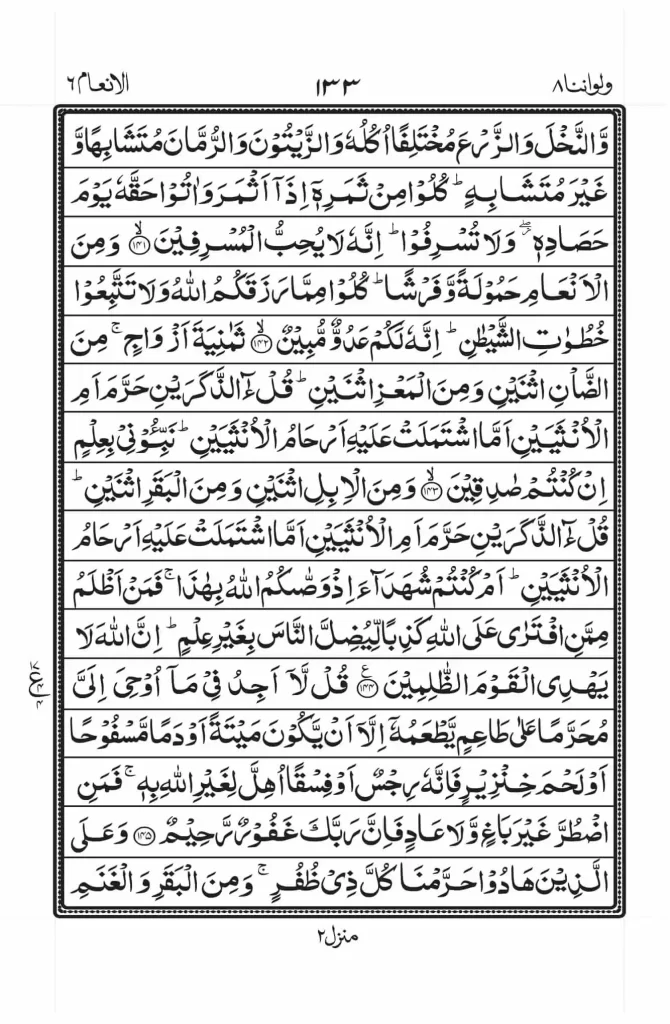 ولواننا ۸
۱۳۳
الانعام ٦
وَّالنَّخْلَ وَالزَّرْعَ مُخْتَلِفًا اُكُلُهٗ وَالزَّيْتُوْنَ وَالرُّمَّانَ مُتَشَابِهًا وَّ
غَيْرَ مُتَشَابِهٍ ؕ كُلُوْا مِنْ ثَمَرِهٖۤ اِذَاۤ اَثْمَرَ وَاٰتُوْا حَقَّهٗ يَوْمَ
حَصَادِهٖ ۖؗ وَلَا تُسْرِفُوْا ؕ اِنَّهٗ لَا يُحِبُّ الْمُسْرِفِيْنَ ۙ﴿۱۴۱﴾ وَمِنَ
الْاَنْعَامِ حَمُوْلَةً وَّفَرْشًا ؕ كُلُوْا مِمَّا رَزَقَكُمُ اللّٰهُ وَلَا تَتَّبِعُوْا
خُطُوٰتِ الشَّيْطٰنِ ؕ اِنَّهٗ لَكُمْ عَدُوٌّ مُّبِيْنٌ ۙ﴿۱۴۲﴾ ثَمٰنِيَةَ اَزْوَاجٍ ۚ مِنَ
الضَّاْنِ اثْنَيْنِ وَمِنَ الْمَعْزِ اثْنَيْنِ ؕ قُلْ ءٰٓالذَّكَرَيْنِ حَرَّمَ اَمِ
الْاُنْثَيَيْنِ اَمَّا اشْتَمَلَتْ عَلَيْهِ اَرْحَامُ الْاُنْثَيَيْنِ ؕ نَبِّـُٔوْنِيْ بِعِلْمٍ
اِنْ كُنْتُمْ صٰدِقِيْنَ ۙ﴿۱۴۳﴾ وَمِنَ الْاِبِلِ اثْنَيْنِ وَمِنَ الْبَقَرِ اثْنَيْنِ ؕ
قُلْ ءٰٓالذَّكَرَيْنِ حَرَّمَ اَمِ الْاُنْثَيَيْنِ اَمَّا اشْتَمَلَتْ عَلَيْهِ اَرْحَامُ
الْاُنْثَيَيْنِ ؕ اَمْ كُنْتُمْ شُهَدَآءَ اِذْ وَصّٰىكُمُ اللّٰهُ بِهٰذَا ۚ فَمَنْ اَظْلَمُ
مِمَّنِ افْتَرٰى عَلَى اللّٰهِ كَذِبًا لِّيُضِلَّ النَّاسَ بِغَيْرِ عِلْمٍ ؕ اِنَّ اللّٰهَ لَا
يَهْدِى الْقَوْمَ الظّٰلِمِيْنَ ۧ﴿۱۴۴﴾ قُلْ لَّاۤ اَجِدُ فِيْ مَاۤ اُوْحِيَ اِلَيَّ
مُحَرَّمًا عَلٰى طَاعِمٍ يَّطْعَمُهٗۤ اِلَّاۤ اَنْ يَّكُوْنَ مَيْتَةً اَوْ دَمًا مَّسْفُوْحًا
اَوْ لَحْمَ خِنْزِيْرٍ فَاِنَّهٗ رِجْسٌ اَوْ فِسْقًا اُهِلَّ لِغَيْرِ اللّٰهِ بِهٖ ۚ فَمَنِ
اضْطُرَّ غَيْرَ بَاغٍ وَّلَا عَادٍ فَاِنَّ رَبَّكَ غَفُوْرٌ رَّحِيْمٌ ﴿۱۴۵﴾ وَعَلَى
الَّذِيْنَ هَادُوْا حَرَّمْنَا كُلَّ ذِيْ ظُفُرٍ ۚ وَمِنَ الْبَقَرِ وَالْغَنَمِ
منزل ۲